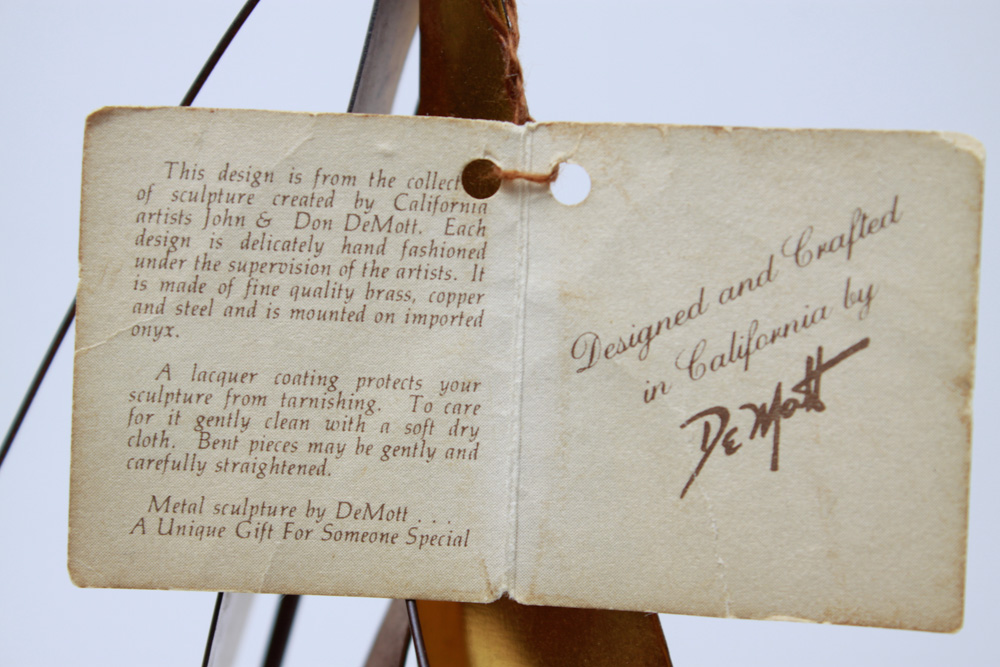 This design is from the collect
of sculpture created by California
artists John & Don DeMott. Each
design is delicately hand fashioned
under the supervision of the artists. It
is made of fine quality brass, copper
and steel and is mounted on imported
onyx.
A lacquer coating protects your
sculpture from tarnishing. To care
for it gently clean with a soft dry
cloth. Bent pieces may be gently and
carefully straightened.
Metal sculpture by DeMott . . .
A Unique Gift For Someone Special
Designed and Crafted
in California by
DeMott